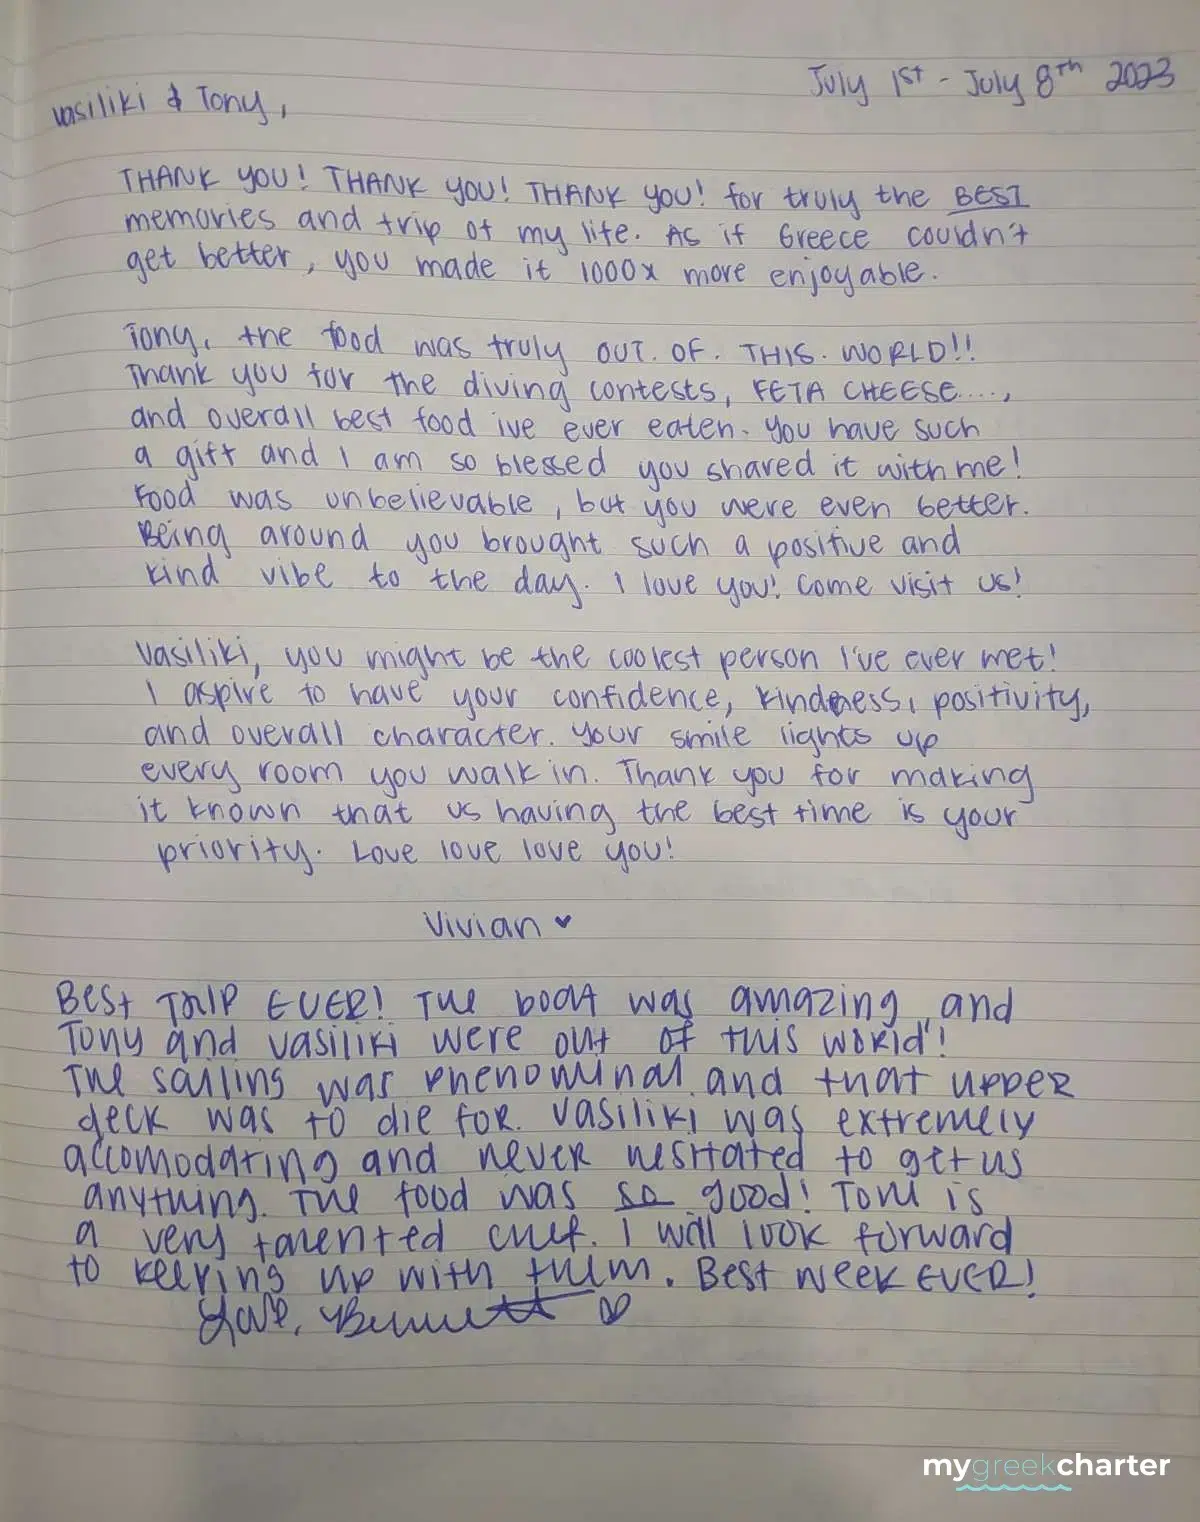 July 1st - July 8th 2023
Vasiliki & Tony,
THANK YOU! THANK YOU! THANK YOU! for truly the BEST
memories and trip of my life. As if Greece couldn't
get better, you made it 1000x more enjoyable.
Tony, the food was truly OUT. OF. THIS. WORLD!!
Thank you for the diving contests, FETA CHEESE....,
and overall best food ive ever eaten. You have such
a gift and I am so blessed you shared it with me!
Food was unbelievable, but you were even better.
Being around you brought such a positive and
kind vibe to the day. I love you! Come visit us!
Vasiliki, you might be the coolest person I've ever met!
I aspire to have your confidence, kindness, positivity,
and overall character. Your smile lights up
every room you walk in. Thank you for making
it known that us having the best time is your
priority. Love love love you!
Vivian ♥
BEST TRIP EVER! The boat was amazing and
Tony and Vasiliki were out of this world!
The sailing was phenominal and that upper
deck was to die for. Vasiliki was extremely
accomodating and never hesitated to get us
anything. The food was so good! Toni is
a very talented chef. I will look forward
to keeping up with them. Best week EVER!
Love, Bennett ♡
mygreekcharter